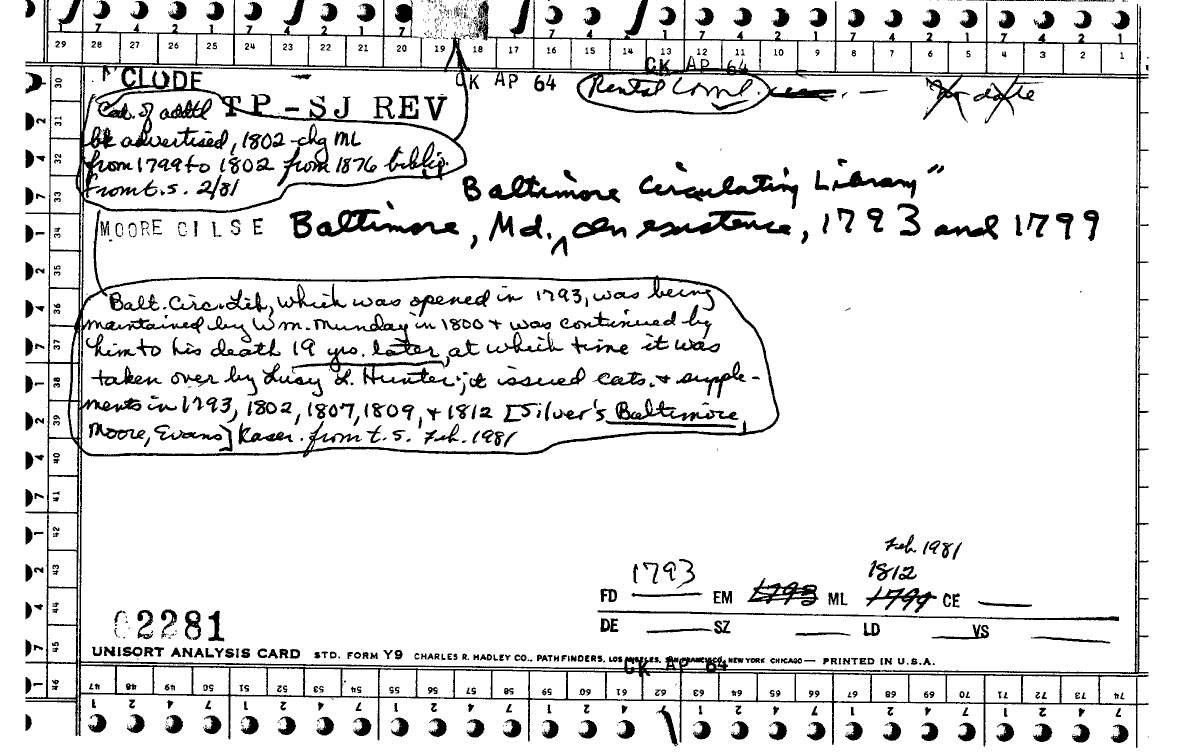 29 28 27 26 25 24 23 22 21 20 19 18 17 16 15 14 13 12 11 10 9 8 7 6 5 4 3 2 1
CLUDE
CK AP 64
CK AP 64
Rental Coml.
No date
Cat. of addtl
TP-SJ REV
bk advertised, 1802-chg ML
from 1799 to 1802 from 1876 bibliog.
from t.s. 2/81
Baltimore Circulating Library"
MOORE CILSE
Baltimore, Md., In existence, 1793 and 1799
Balt. Circ. Lib, which was opened in 1793, was being
maintained by Wm. Munday in 1800 + was continued by
him to his death 19 yrs. later, at which time it was
taken over by Lucy L. Hunter; it issued cats. + supple-
ments in 1793, 1802, 1807, 1809, + 1812 [Silver's Baltimore,
Moore, Evans] Kaser. from t.s. Feb. 1981
Feb. 1981
1793
1812
FD EM 1793 ML 1799 CE
DE SZ LD VS
02281
UNISORT ANALYSIS CARD STD. FORM Y9 CHARLES R. HADLEY CO., PATHFINDERS, LOS ANGELES, SAN FRANCISCO, NEW YORK CHICAGO — PRINTED IN U.S.A.
CK AP 64
30
31
32
33
34
35
36
37
38
39
40
41
42
43
44
45
46
47 48 49 50 51 52 53 54 55 56 57 58 59 60 61 62 63 64 65 66 67 68 69 70 71 72 73 74